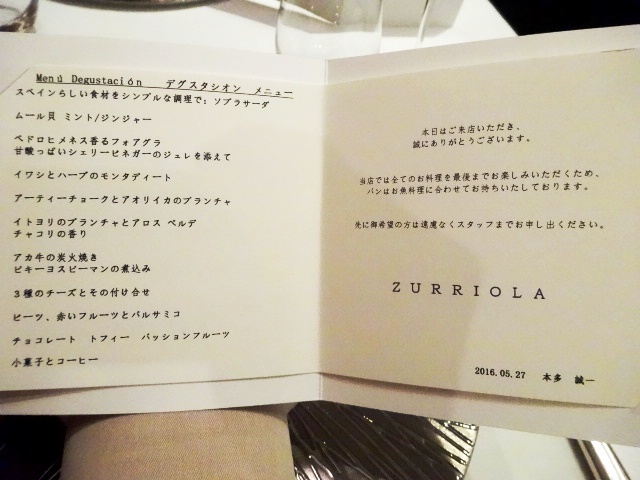 Menú Degustación デグスタシオン メニュー
スペインらしい食材をシンプルな調理で: ソブラサーダ
ムール貝 ミント/ジンジャー
ペドロヒメネス香るフォアグラ
甘酸っぱいシェリービネガーのジュレを添えて
イワシとハーブのモンタディート
アーティーチョークとアオリイカのプランチャ
イトヨリのプランチャとアロス ベルデ
チャコリの香り
アカ牛の炭火焼き
ピキーヨスピーマンの煮込み
3種のチーズとその付け合せ
ビーツ、赤いフルーツとバルサミコ
チョコレート トフィー パッションフルーツ
小菓子とコーヒー
本日はご来店いただき、
誠にありがとうございます。
当店では全てのお料理を最後までお楽しみいただくため、
パンはお魚料理に合わせてお持ちいたしております。
先に御希望の方は遠慮なくスタッフまでお申し出ください。
ZURRIOLA
2016.05.27 本多 誠一